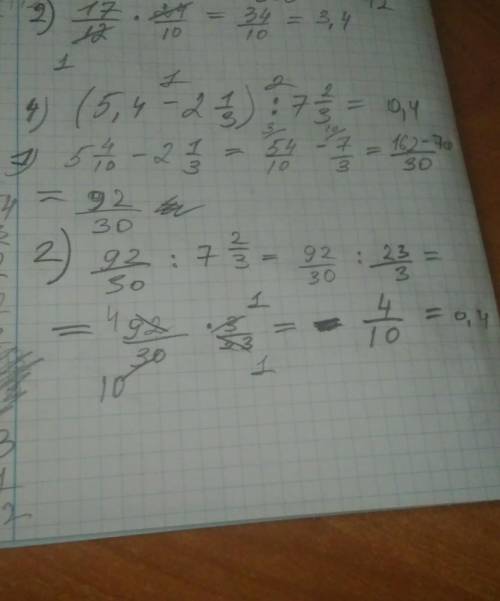 2) 17/12 · 24/10 = 34/10 = 3,4
1
4) (5,4 - 2 1/3) : 7 2/3 = 0,4
1) 5 4/10 - 2 1/3 = 54/10 - 7/3 = 162-70/30
= 92/30
2) 92/50 : 7 2/3 = 92/30 : 23/3 =
= 92/30 · 3/23 = 4/10 = 0,4